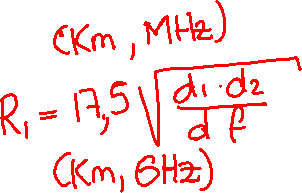 (Km, MHz)
R₁ = 17,5 √(d₁·d₂ / d f)
(Km, GHz)